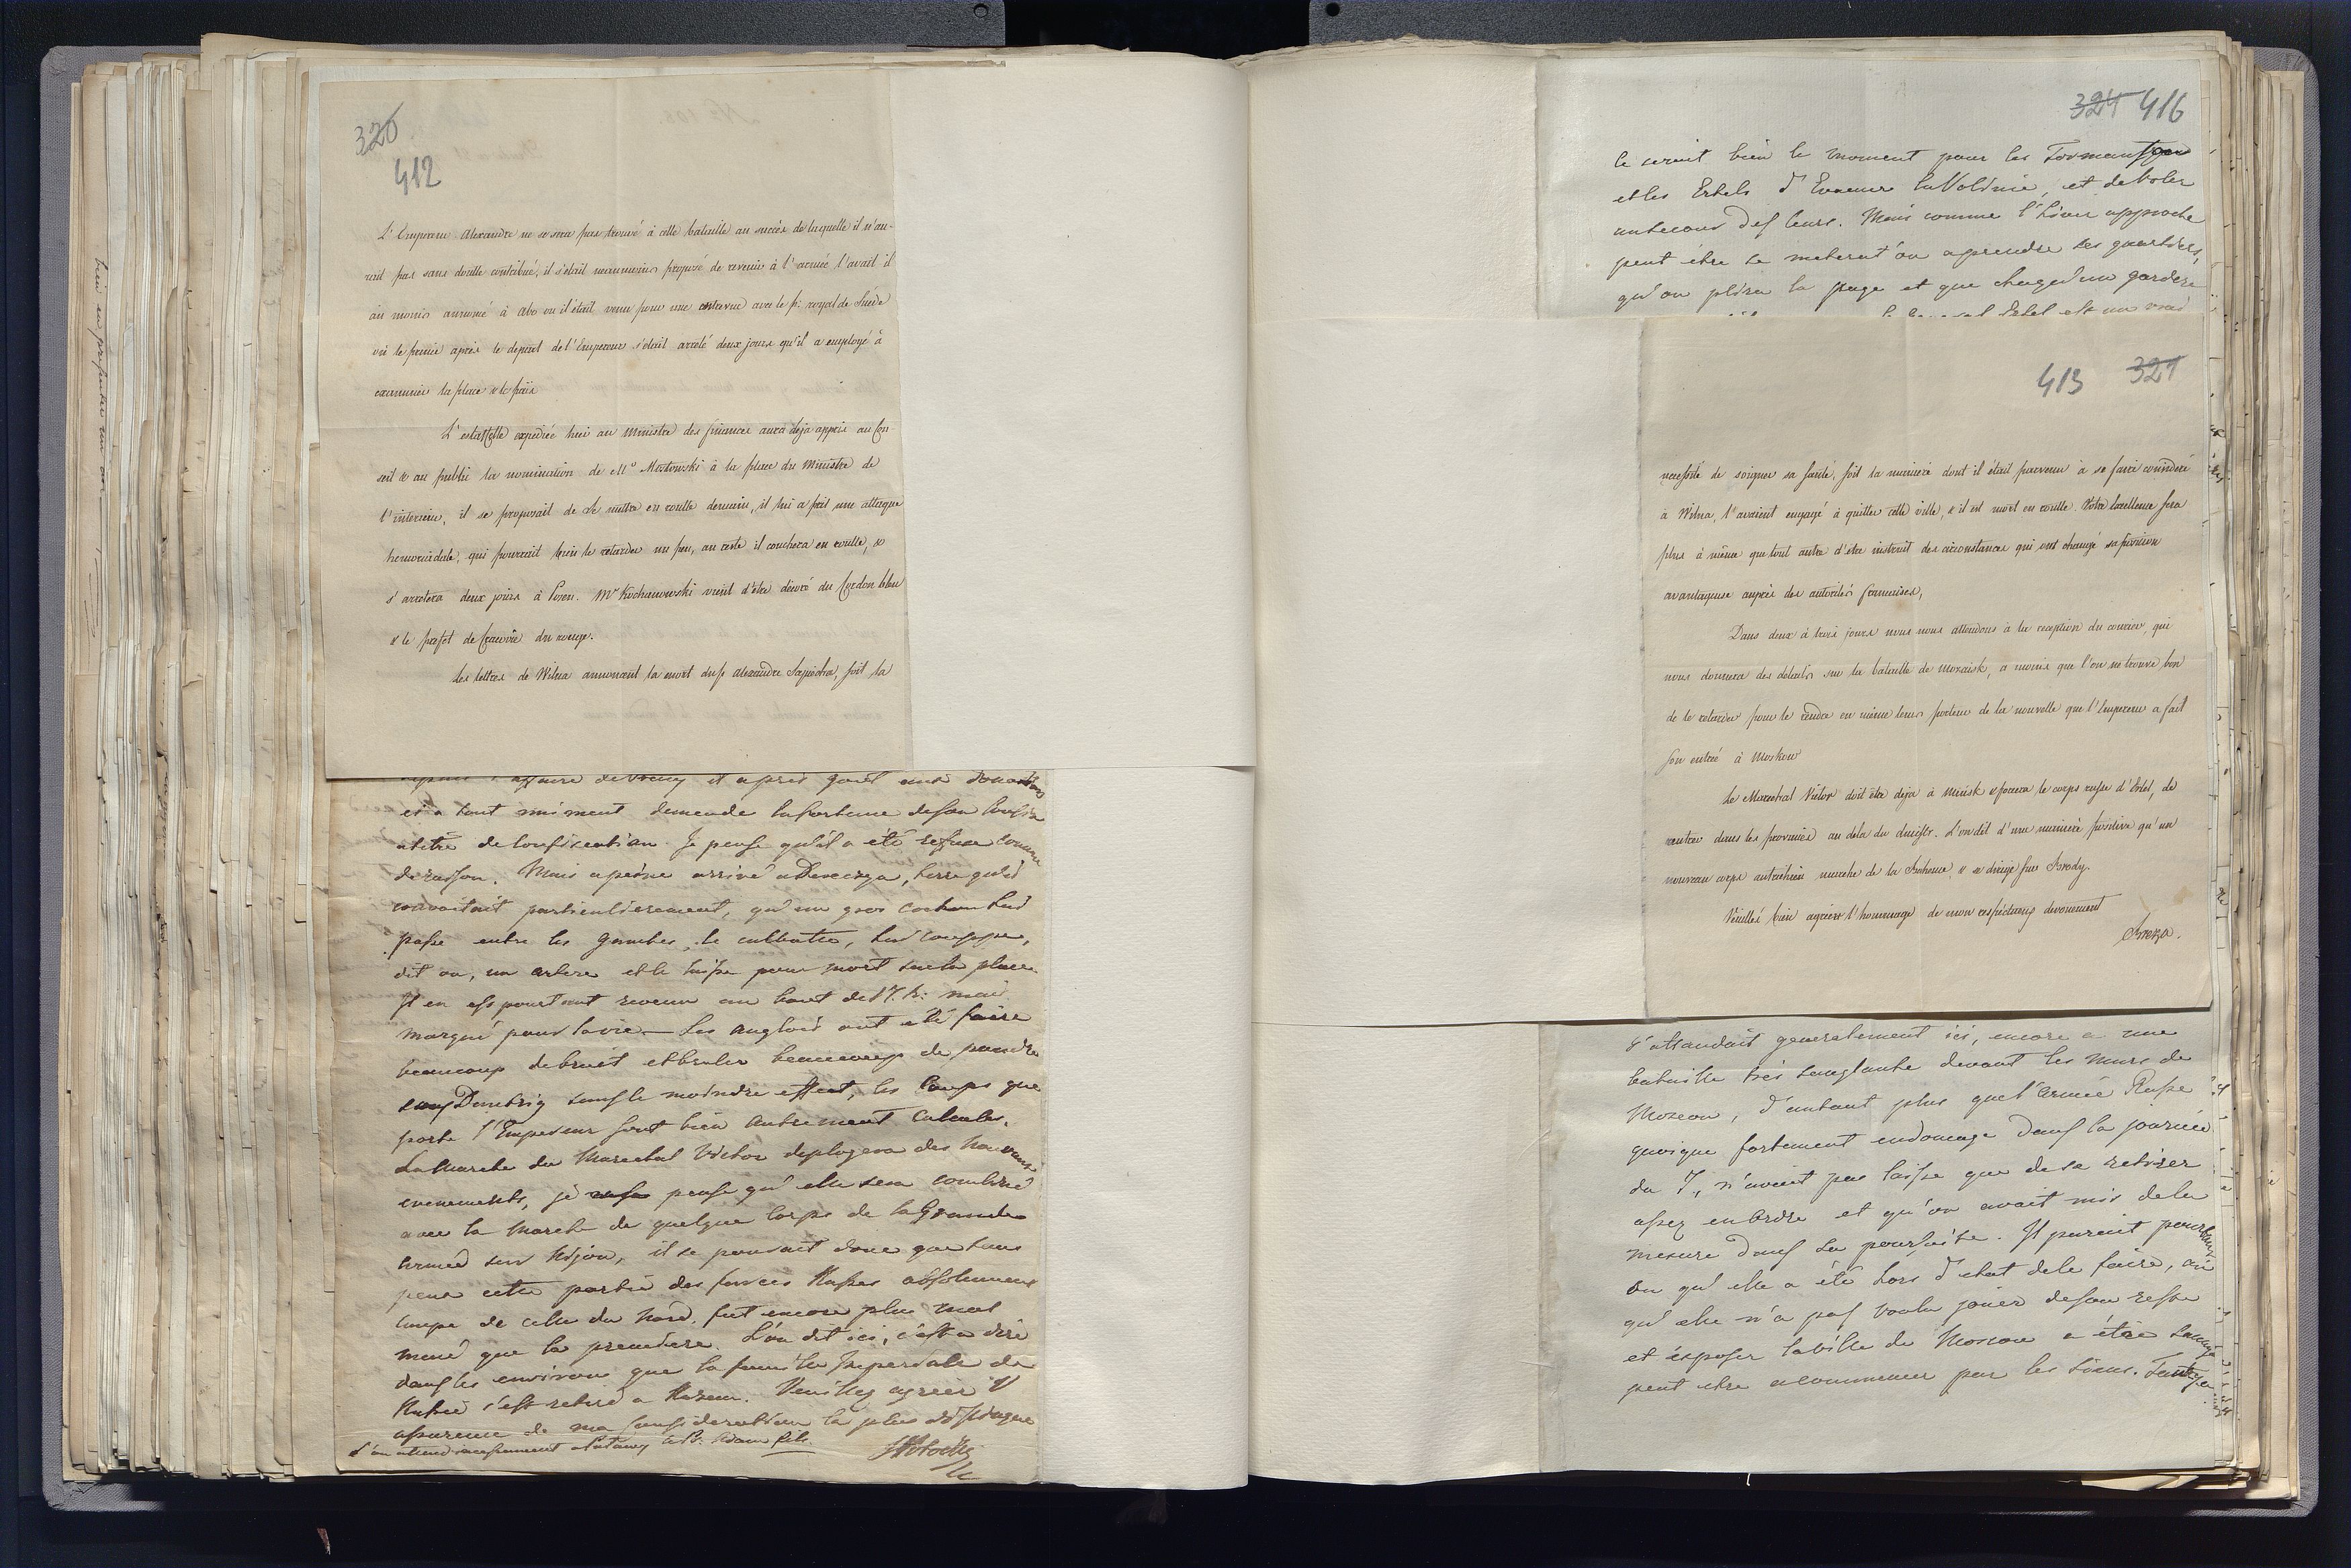 320
412
L'Empereur Alexandre ne se sera pas trouvé à cette bataille au succès de laquelle il n'au-
rait pas sans doutte contribué; il s'était neanmoins proposé de revenir à l'armée l'avait il
au moins annoncé à Abo ou il était venu pour une entrevue avec le p: royal de Suède
où le prince après le depart de l'Empereur s'était arrêté deux jours qu'il a employé à
examiner la place & le païs
L'estaffette expediée hier au Ministre des finances aura deja appris au Con-
seil & au public la nomination de Mr Mostowski à la place du Ministre de
l'interieur, il se proposait de se mettre en routte demain, il lui a prit une attaque
hemoroidale, qui pourrait bien le retarder un peu, au reste il couchera en routte, &
s'arretera deux jours à Posen. Mr Kochanowski vient d'être décoré du Cordon bleu
& le prefet de Cracovie du rouge.
Les lettres de Wilna annoncent la mort du p. Alexandre Sapieha, soit la
l'affaire de et après quoi
et à tout moment demande la fortune de son Cousin
atitre de Confiscation. Je pense qu'il a été refusé comme
de raison. Mais apeine arrivé a Dereczyn, terre qu'il
convoitait particulierement, qu'un gros cochon lui
passe entre les Jambes, le culbutte, lui
dit on, un artere et le laisse pour mort sur la place.
Il en est pourtant revenu au bout de 17. h: mais
marqué pour la vie — Les anglois ont été faire
beaucoup de bruit et bruler beaucoup de poudre
sous Dantzig sans le moindre effect, les Coups que
porte l'Empereur sont bien autrement Calculés.
La Marche du Marechal Victor deployera des Nouveaux
evenements, je pense qu'elle sera combiné
avec la Marche de quelque Corps de la Grande
Armée sur Kijow, il se pourrait donc que sous
peu cette partie des forces Russes absolument
Coupé de celle du Nord, fut encore plus mal
mené que la premiere. L'on dit ici, c'est a dire
dans les environs que la famille Imperiale de
Russie s'est retiré a Kasan. Veuillez agreer l'
assurence de ma Consideration la plus distinguée
L'on attend incessamment a Pulawy le Pr. Adam fils.
324 416
Ce serait bien le moment pour les Tormansow
et les Ertels d'Evacuer la Volinie, et de Voler
au secour des leurs. Mais comme l'hiver approche
peut être se metera t'on a prendre ses quartiers,
qu'on plira la page et que chaqu'un gardera
Ertel est un vrai
413 321
necessité de soigner sa santé, soit la maniere dont il était parvenu à se faire considere
à Wilna, l'avaient engagé à quitter cette ville, & il est mort en routte. Votre Excellence sera
plus à même que tout autre d'être instruit des circonstances qui ont changé sa position
avantageuse auprès des autorités francaises,
Dans deux à trois jours nous nous attendons à la reception du courier, qui
nous donnera des details sur la bataille de Mozaisk, a moins que l'on ne trouve bon
de le retarder pour le rendre en même tems porteur de la nouvelle que l'Empereur a fait
son entrée à Moskow
Le Marechal Victor doit être deja à Minsk & forcera le corps russe d'Ertel, de
rentrer dans les provinces au dela du dniepr. L'on dit d'une maniere positive qu'un
nouveau corps autrichien marche de la Boheme, & se dirige sur Brody.
Veuillés bien agréer l'hommage de mon respectueux devouement
Breza.
s'attandait generalement ici, encore a une
bataille très sanglante devant les Murs de
Moscou, d'autant plus que l'armée Russe
quoique fortement endomagé dans la journée
du 7, n'avait pas laissé que de se retirer
assez en Ordre et qu'on avait mis de la
mesure dans sa poursuite. Il parait pourtant
ou qu'elle a été hors d'etat de le faire, ou
qu'elle n'a pas voulu jouer de son reste
et exposer la Ville de Moscou a être
peut etre a commencer par les siens.